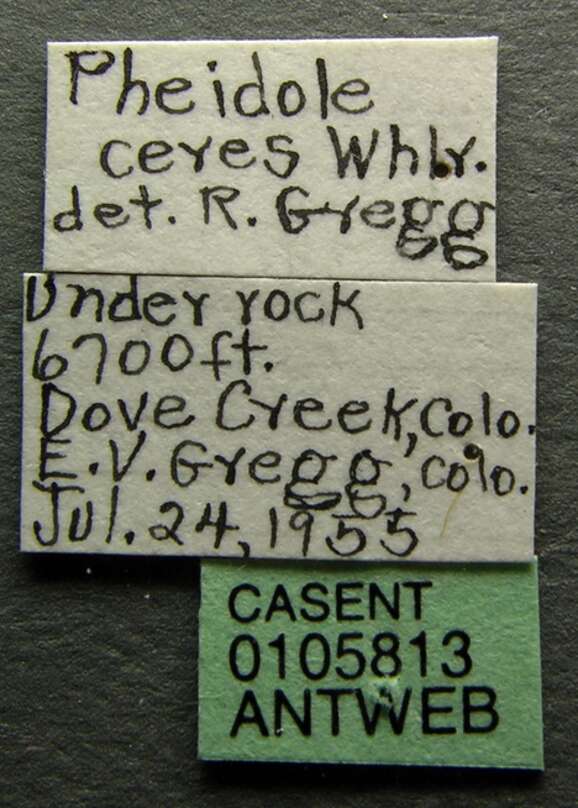 Pheidole
ceres Whlr.
det. R. Gregg
Under rock
6700ft.
Dove Creek, Colo.
E.V. Gregg, colo.
Jul. 24, 1955
CASENT
0105813
ANTWEB